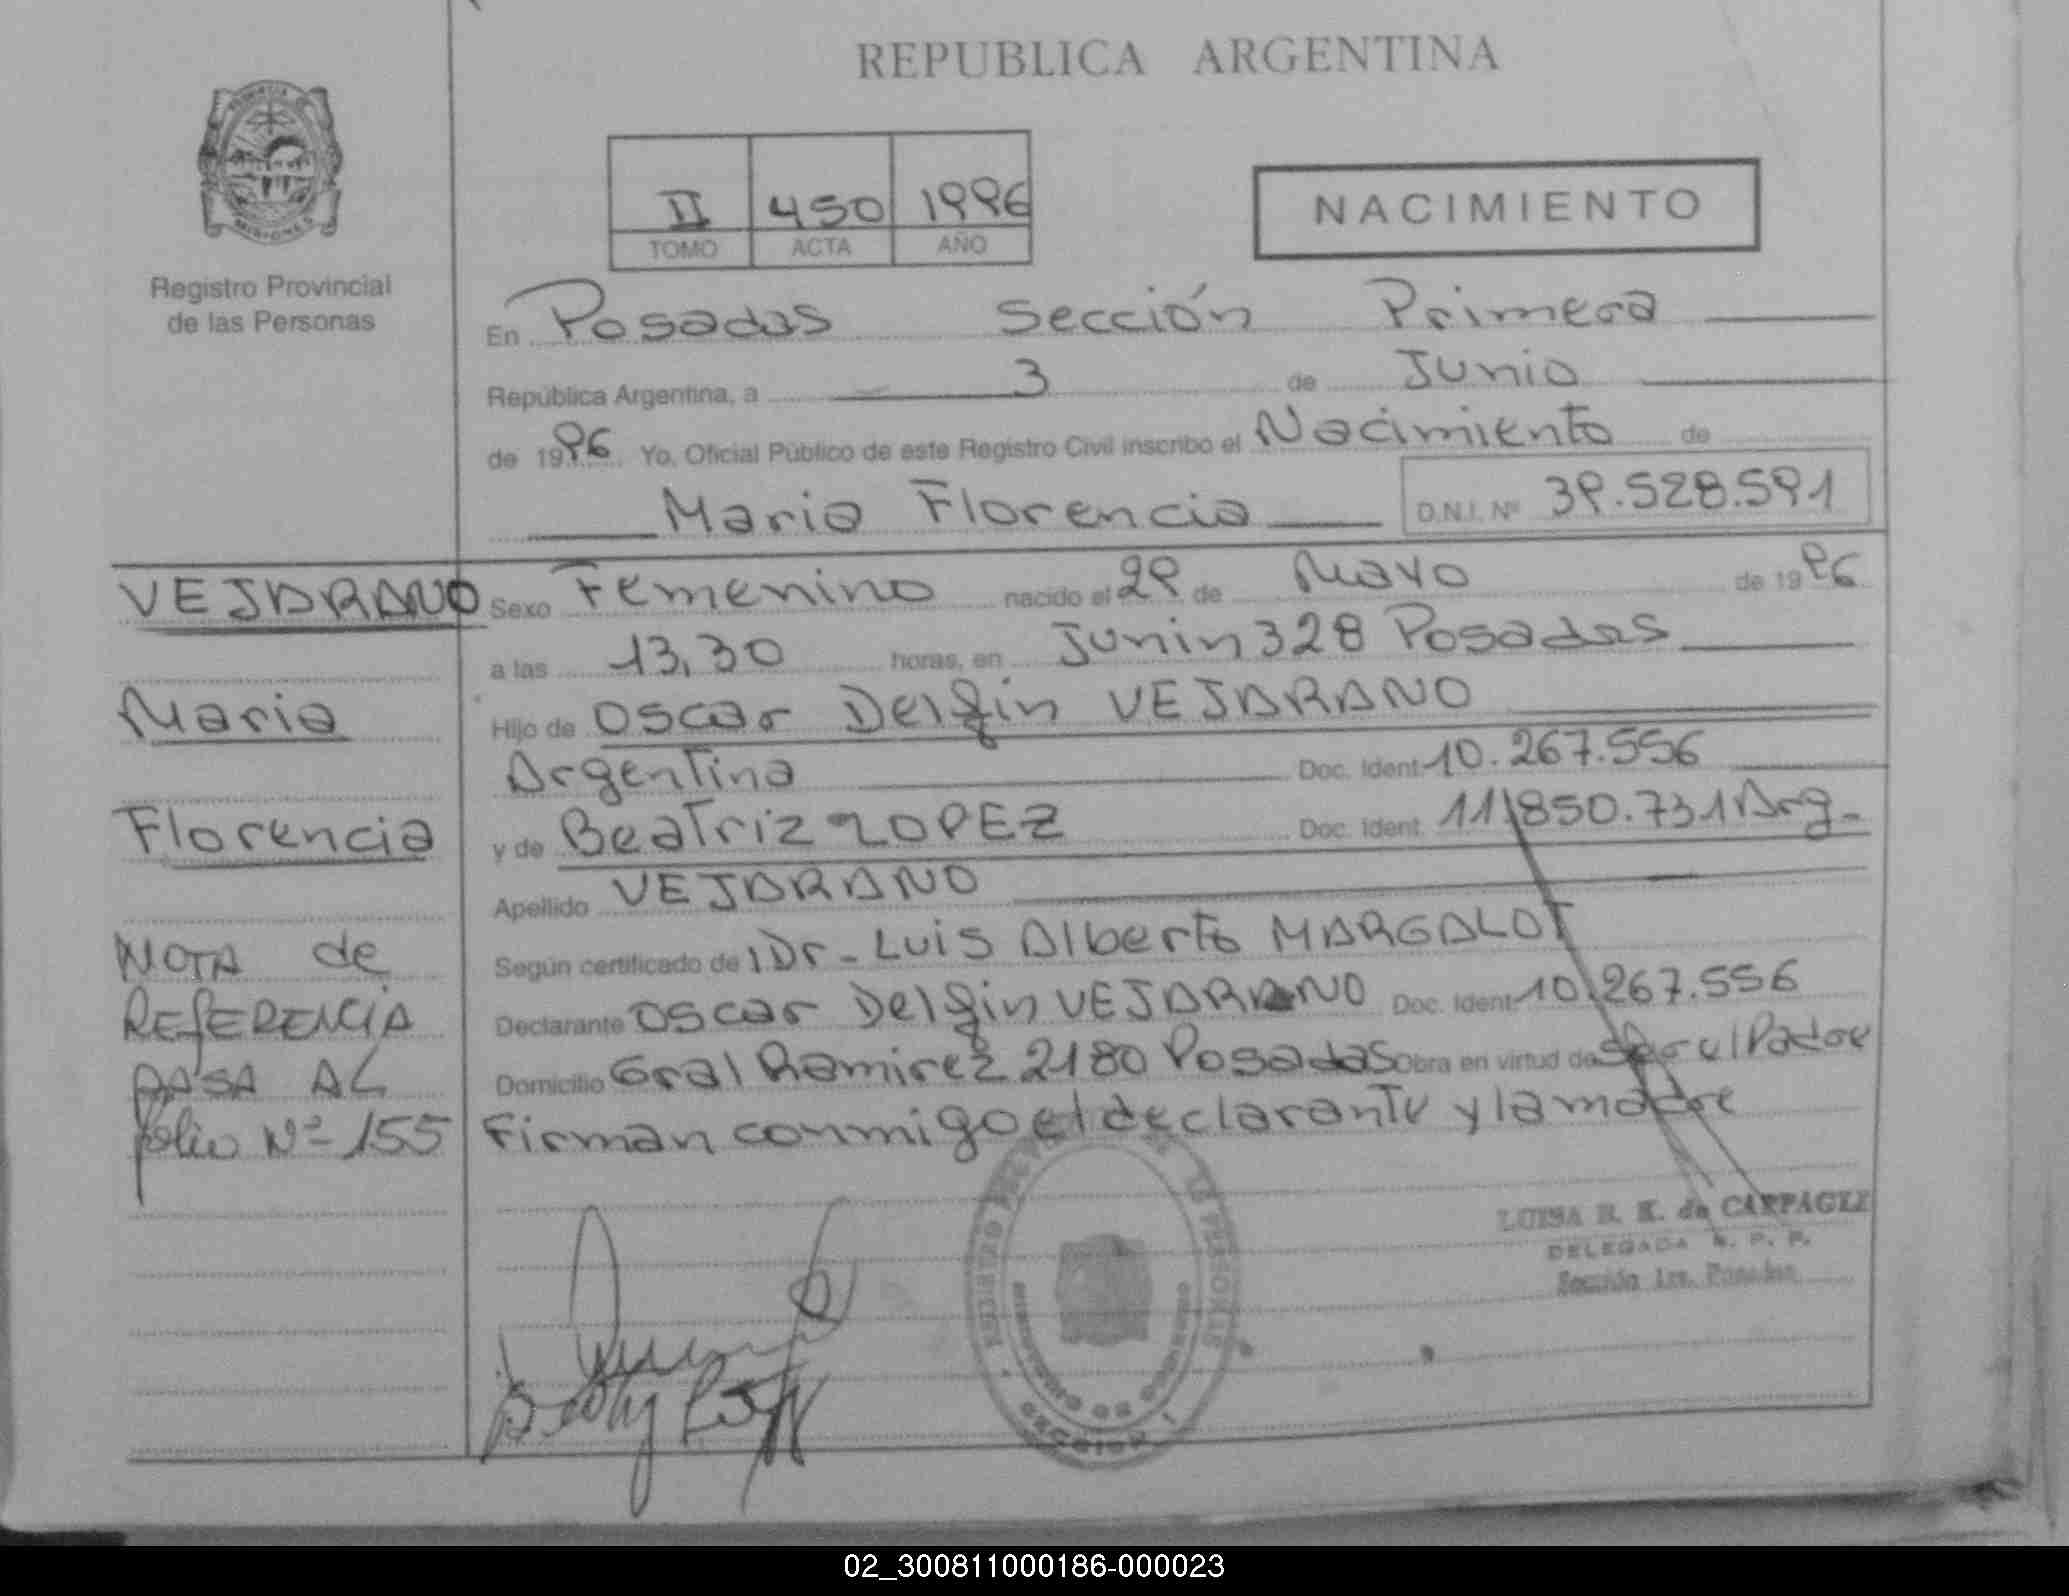 REPUBLICA ARGENTINA
II 450 1996
TOMO ACTA AÑO
NACIMIENTO
Registro Provincial
de las Personas
En Posadas Sección Primera
República Argentina, a 3 de Junio
de 1996 Yo, Oficial Público de este Registro Civil inscribo el Nacimiento de
Maria Florencia D.N.I. Nº 39.528.591
VEJARANO
Maria
Florencia
NOTA de
REFERENCIA
PASA AL
folio Nº 155
Sexo Femenino nacido el 29 de Mayo de 1996
a las 13,30 horas, en Junin 328 Posadas
Hijo de Oscar Delfin VEJARANO
Argentina Doc. Ident. 10.267.556
y de Beatriz LOPEZ Doc. Ident. 11.850.731 Arg.
Apellido VEJARANO
Según certificado de Dr. Luis Alberto MARGALOT
Declarante Oscar Delfin VEJARANO Doc. Ident. 10.267.556
Domicilio Gral Ramirez 2180 Posadas Obra en virtud de Ser el Padre
Firman conmigo el declarante y la madre
LUISA R. K. de
DELEGADA R. P. P.
Sección 1ra. Posadas
REGISTRO DE LAS PERSONAS
SECCION 1
02_300811000186-000023